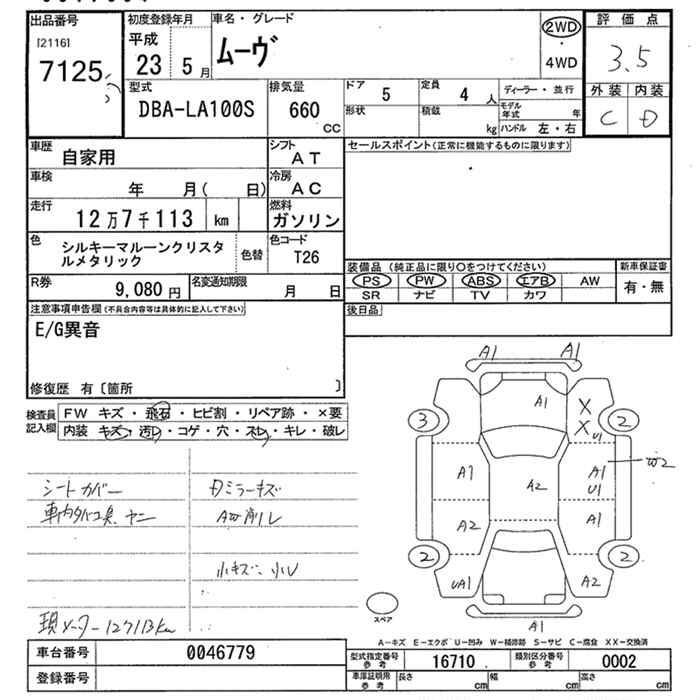 出品番号
[2116]
7125
初度登録年月
平成
23 5月
車名・グレード
ムーヴ
2WD
・
4WD
評価点
3.5
外装 内装
C D
型式
DBA-LA100S
排気量
660
CC
ドア 5
定員 4 人
形状
積載 kg
ディーラー・並行
モデル年式 年
ハンドル 左・右
車歴 自家用
シフト AT
車検 年 月( 日)
冷房 AC
走行 12万7千113 km
燃料 ガソリン
色 シルキーマルーンクリスタ
ルメタリック
色替
色コード T26
R券 9,080円
名変通知期限 月 日
セールスポイント(正常に機能するものに限ります)
装備品 (純正品に限り○をつけてください)
PS PW ABS エアB AW
SR ナビ TV カワ
新車保証書
有・無
後日品
注意事項申告欄(不具合内容等は具体的に記入して下さい)
E/G異音
修復歴 有〔箇所 〕
検査員記入欄
FW キズ・飛石・ヒビ割・リペア跡・×要
内装 キズ・汚レ・コゲ・穴・スレ・キレ・破レ
シートカバー
車内タバコ臭、ヤニ
現メーター127113km
Dミラーキズ
小キズ、小U
A1 A1
A1
X
X U1
3 2
A1 A2 A1 U1 W2
A2 A1
2 2
UA1 A2
A1
スペア
A−キズ E−エクボ U−凹み W−補修跡 S−サビ C−腐食 XX−交換済
車台番号 0046779
登録番号
型式指定番号 参考 16710
類別区分番号 参考 0002
車庫証明用 参考 長さ cm 幅 cm 高さ cm